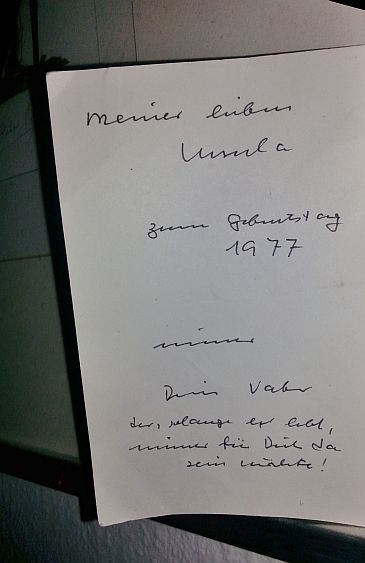 meiner lieben
Ursula
zum Geburtstag
1977
immer
Dein Vater
der, solange er lebt,
immer für Dich da
sein möchte!